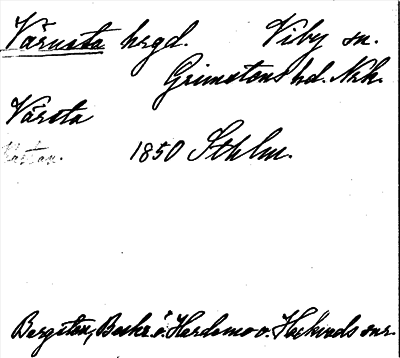 Värnsta hrgd. Viby sn.
Grimstens hd. Nrk.
Värsta
1850 Sthlm.
Bergsten, Beskr. ö. Hardemo o. Hackvads snr.